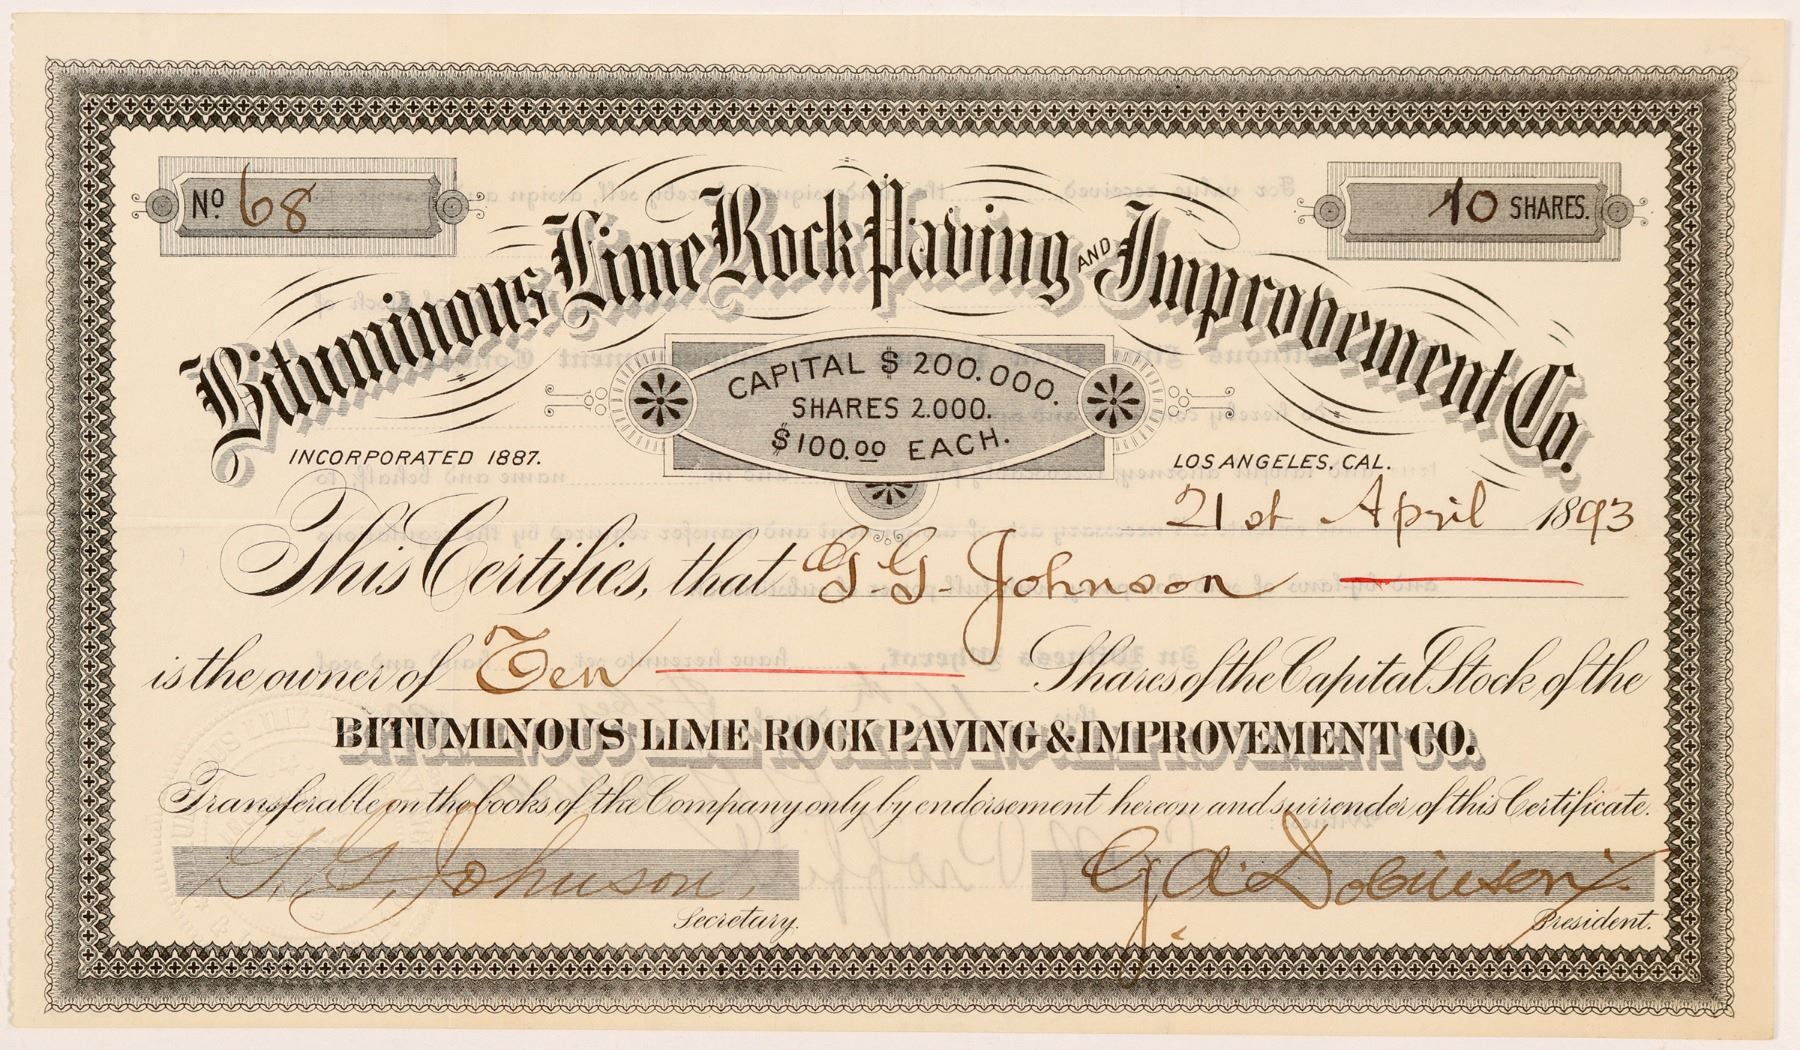 No 68
10 SHARES.
Bituminous Lime Rock Paving AND Improvement Co.
CAPITAL $ 200.000.
SHARES 2.000.
$100.00 EACH.
INCORPORATED 1887.
LOS ANGELES, CAL.
21st April 1893
This Certifies, that G. G. Johnson
is the owner of Ten Shares of the Capital Stock of the
BITUMINOUS LIME ROCK PAVING & IMPROVEMENT CO.
Transferable on the books of the Company only by endorsement hereon and surrender of this Certificate.
G. G. Johnson, G. A. Dobinson
Secretary. President.